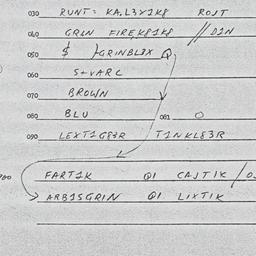 030 RUNT= KA.L3Y1K8 ROJT
040 GRIN FIREK81K8 // D1N
050 $ GRINBL3X Q
060 S+VARC
070 BROWN
080 BLU 081 O
090 LEXT1G83R T1NKL83R
FART1K Q1 CAJT1K /
ARB1SGRIN Q1 LIXT1K